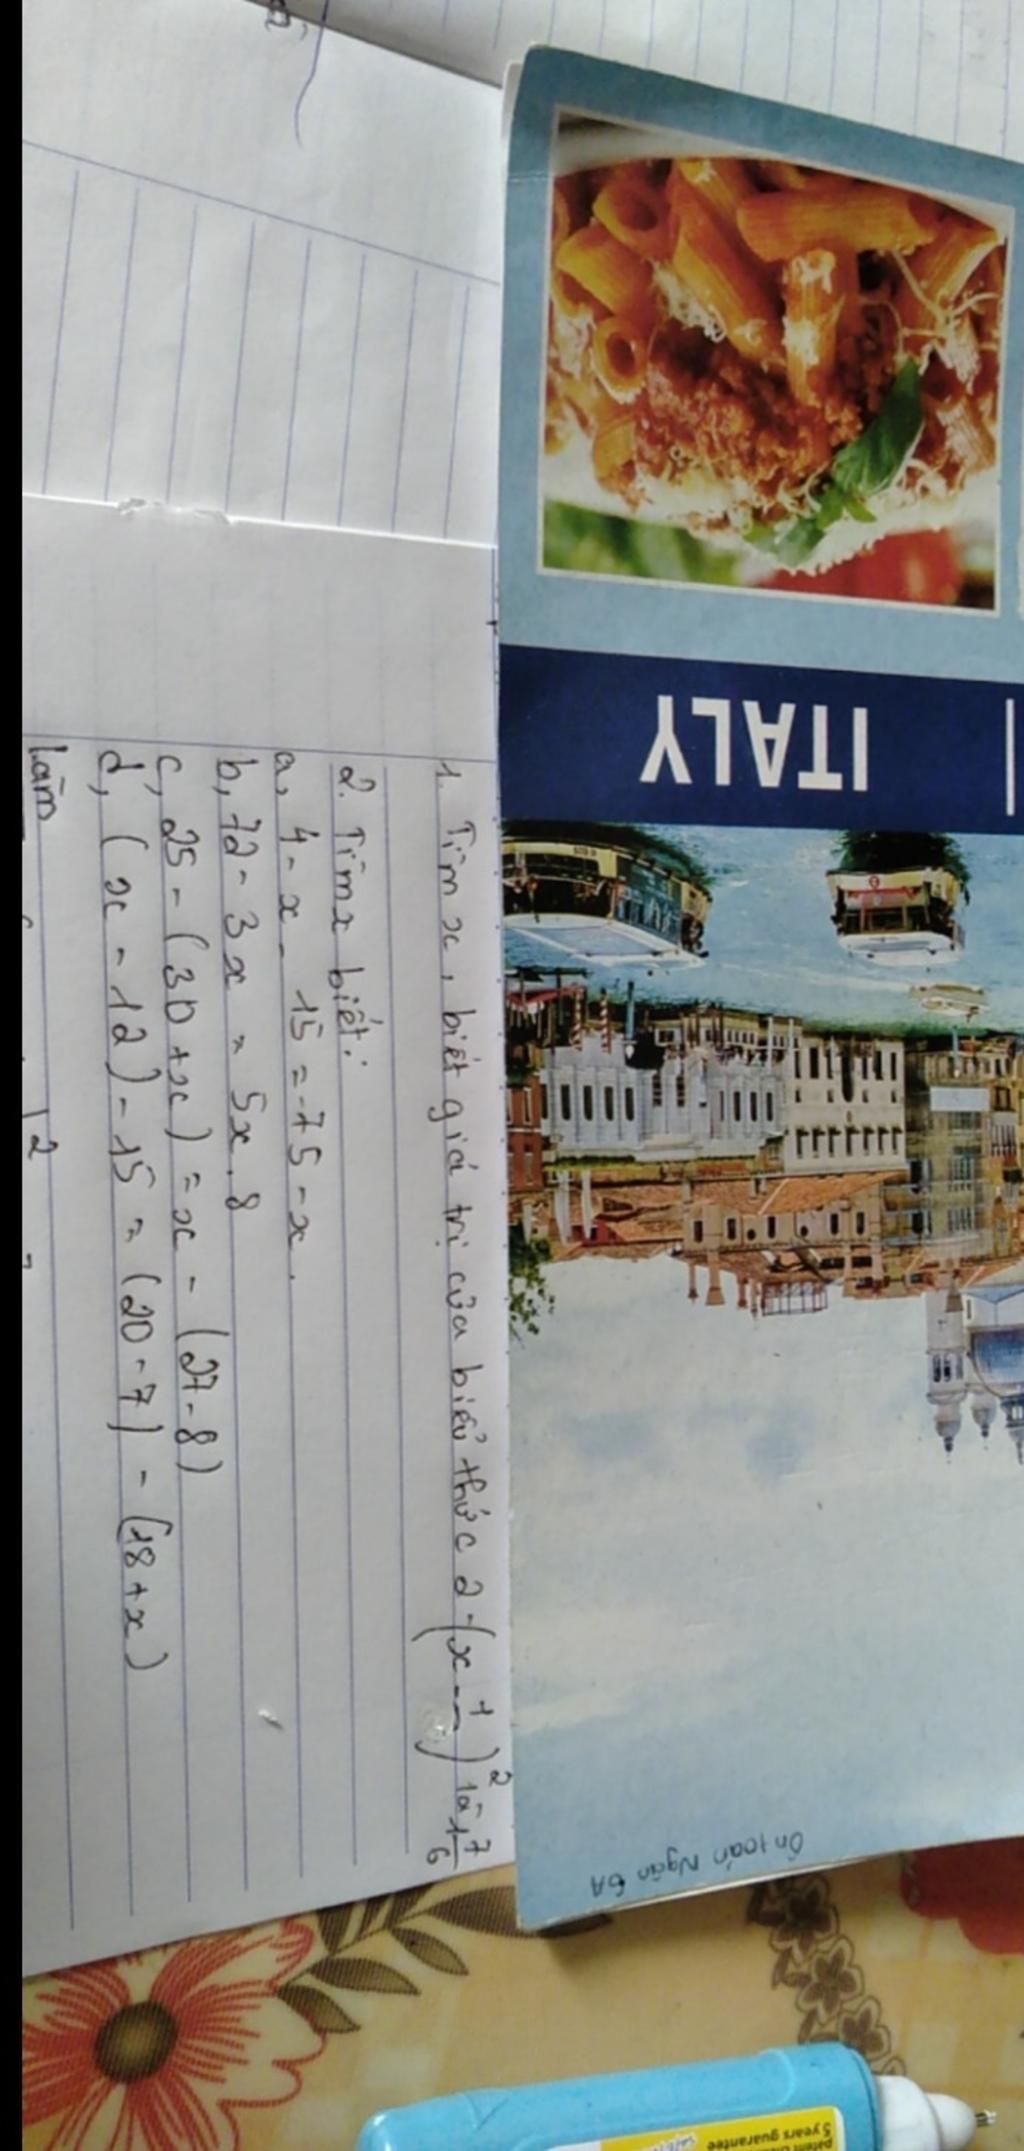 1. Tìm x, biết giá trị của biểu thức 2-(x-1/)² là 7/16
2. Tìm x biết:
a, 4-x-15=-75-x.
b, 72-3x=5x.8
c, 25-(30+x)=x-(27-8)
d, (x-12)-15=(20-7)-(18+x)
Làm
2
ITALY
Ôn toán Ngân 6A
5 years guarantee